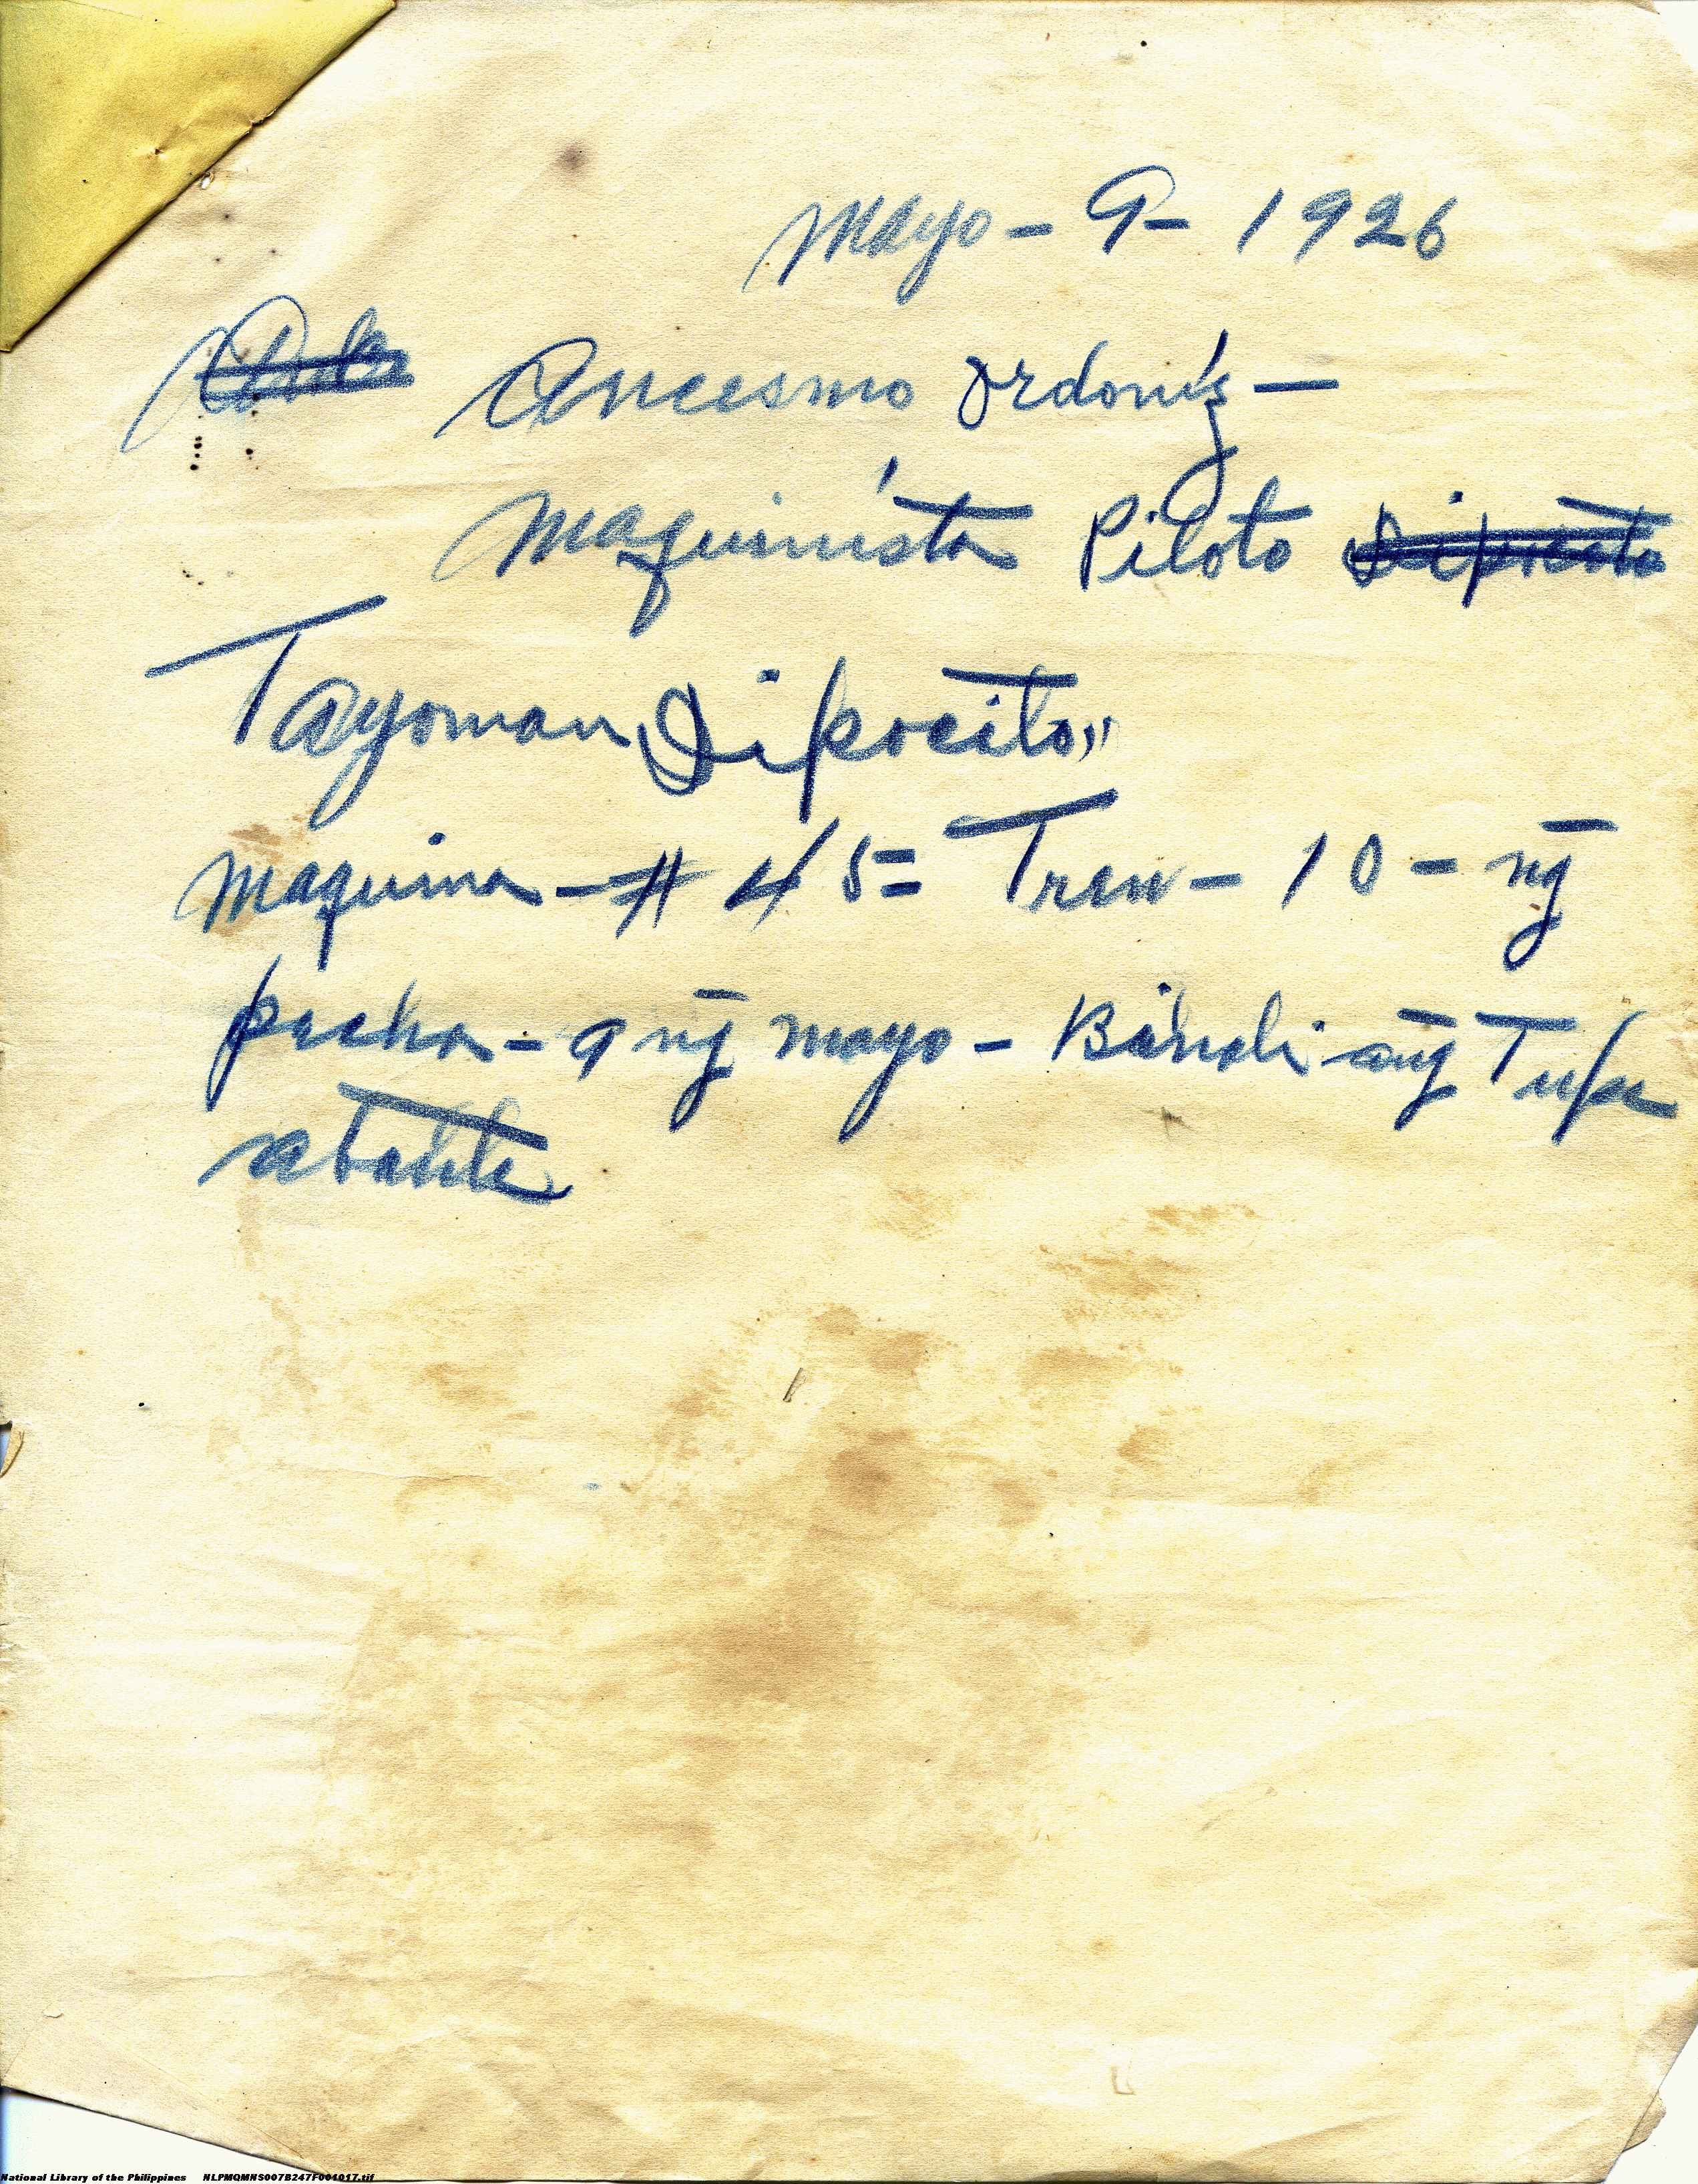 Mayo - 9 - 1926
Ancesmo Ordonis -
Maquinista Piloto Dipocito
Tayoman Dipocito"
maquina - # 45 = Tren - 10 - ng̃
pecha - 9 ng̃ mayo - Binali ang̃
abante
National Library of the Philippines NLPMQMNS007B247F001017.tif